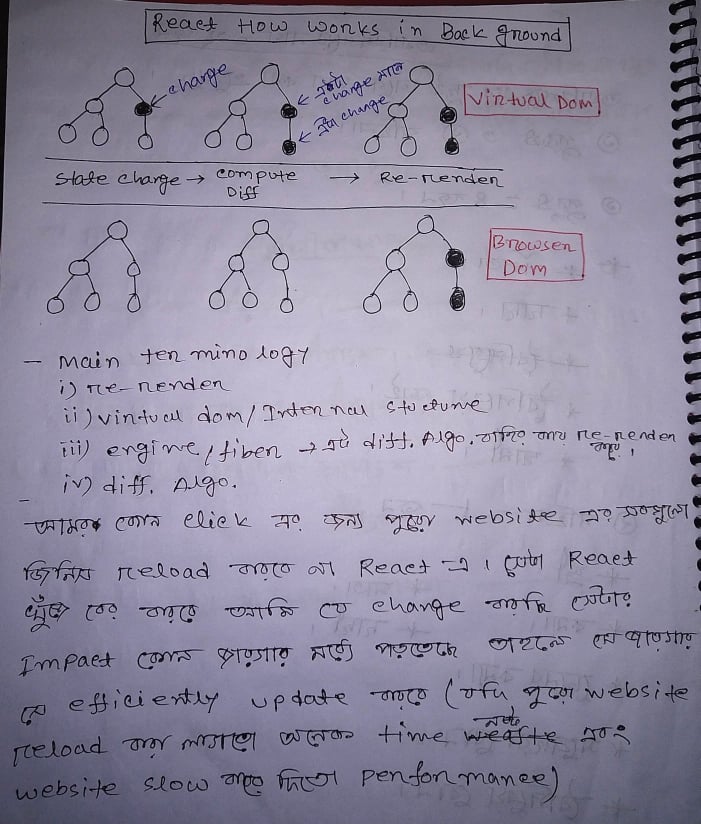 React How Works in Back ground
change
এটা change মানে
এটা change
Virtual Dom
State change → compute Diff → Re-render
Browser Dom
– Main terminology
i) re-render
ii) virtual dom / Internal structure
iii) engine / fiber → এটা diff. Algo. চালিয়ে আবার re-render করে।
iv) diff. Algo.
– আমরা কোন click এর জন্য পুরো website এর সবগুলো
জিনিস reload করবে না React এ। সেটা React
খুঁজে বের করবে আমি যে change করছি সেটার
Impact কোন জায়গার মধ্যে পড়তেছে তাহলে সে জায়গার
সে efficiently update করবে (যদি পুরো website
reload করা লাগতো অনেক time নষ্ট এবং
website slow করে দিতো performance)